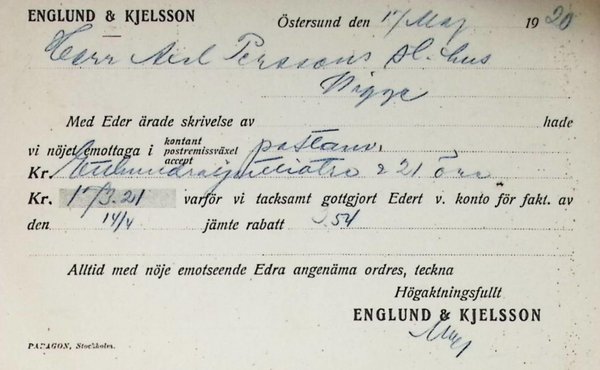 ENGLUND & KJELSSON
Östersund den 17/Maj 1920
Herr Axel Perssons
Vigge
Med Eder ärade skrivelse av hade
vi nöjet emottaga i kontant postremissväxel accept postanv.
Kr. 21 öre
Kr. 173.21 varför vi tacksamt gottgjort Edert v. konto för fakt. av
den 14/4 jämte rabatt 3.54
Alltid med nöje emotseende Edra angenäma ordres, teckna
Högaktningsfullt
ENGLUND & KJELSSON
PARAGON, Stockholm.